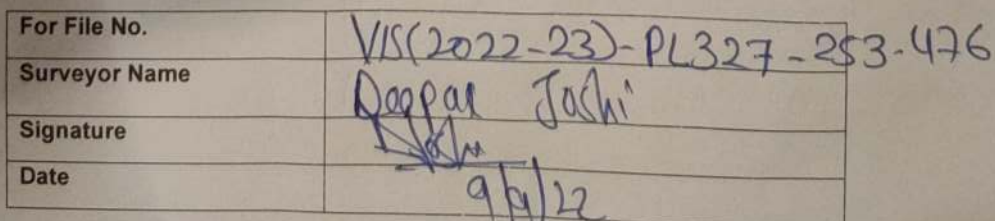 For File No. VIS(2022-23)-PL327-253-476
Surveyor Name Deepak Joshi
Signature Joshi
Date 9/9/22